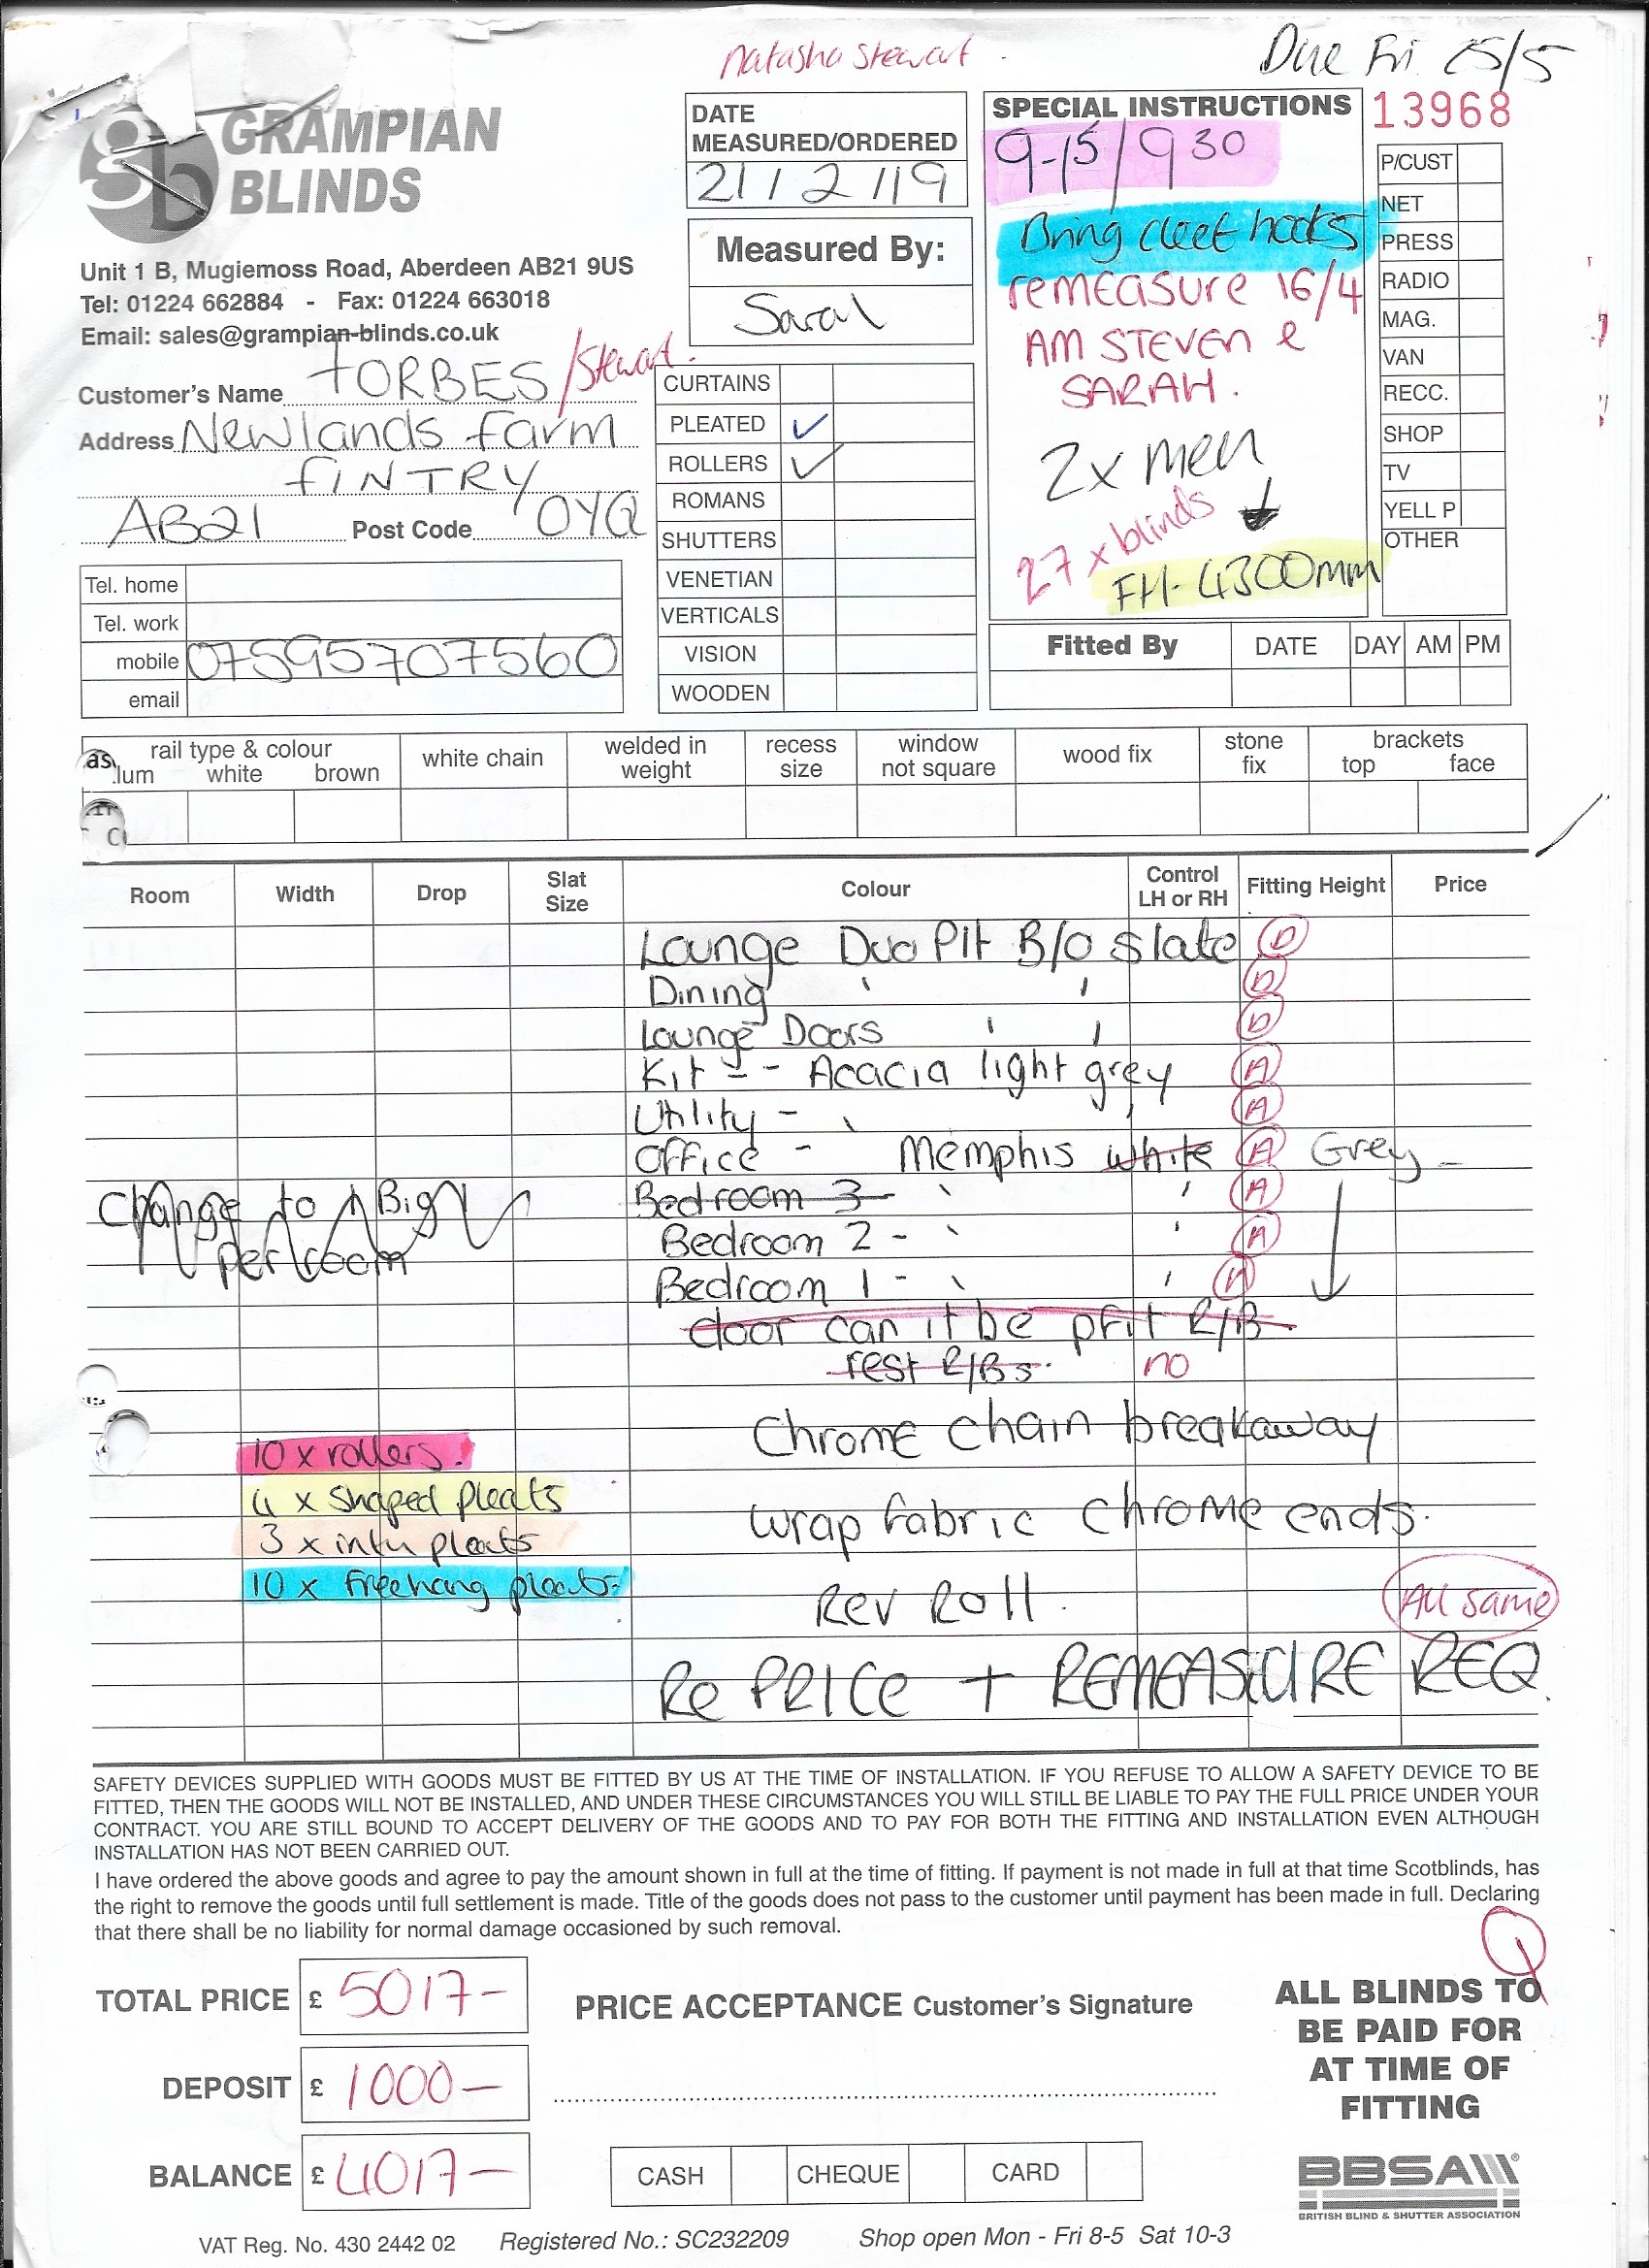 Natasha Stewart
Due Fri 25/5
GRAMPIAN
BLINDS
Unit 1 B, Mugiemoss Road, Aberdeen AB21 9US
Tel: 01224 662884 - Fax: 01224 663018
Email: sales@grampian-blinds.co.uk
Customer's Name FORBES /Stewart
Address Newlands farm
FINTRY
AB21 Post Code 0YQ
Tel. home
Tel. work
mobile 07595707560
email
DATE
MEASURED/ORDERED
21/2/19
Measured By:
Sarah
CURTAINS
PLEATED ✓
ROLLERS ✓
ROMANS
SHUTTERS
VENETIAN
VERTICALS
VISION
WOODEN
SPECIAL INSTRUCTIONS
9-15/930
Bring cleet hooks
remeasure 16/4
AM STEVEN &
SARAH.
2x men
27 x blinds
FH- 4300mm
13968
P/CUST
NET
PRESS
RADIO
MAG.
VAN
RECC.
SHOP
TV
YELL P
OTHER
Fitted By DATE DAY AM PM
rail type & colour
lum white brown
white chain
welded in weight
recess size
window not square
wood fix
stone fix
brackets
top face
Room Width Drop Slat Size Colour Control LH or RH Fitting Height Price
Lounge Duo Plt B/O Slate D
Dining ' ' D
Lounge Doors ' ' D
Kit - - Acacia light grey A
Utility - ' ' A
Office - Memphis white A Grey -
Bedroom 3 - ' ' A
Change to Big
Bedroom 2 - ' ' A
per room
Bedroom 1 - ' ' A
door can it be pfit R/B
rest R/Bs. no
Chrome chain breakaway
10 x rollers.
4 x shaped pleats
wrap fabric chrome ends.
3 x intu pleats
10 x Freehang pleats
Rev Roll.
All same
Re PRICE + REMEASURE REQ.
SAFETY DEVICES SUPPLIED WITH GOODS MUST BE FITTED BY US AT THE TIME OF INSTALLATION. IF YOU REFUSE TO ALLOW A SAFETY DEVICE TO BE
FITTED, THEN THE GOODS WILL NOT BE INSTALLED, AND UNDER THESE CIRCUMSTANCES YOU WILL STILL BE LIABLE TO PAY THE FULL PRICE UNDER YOUR
CONTRACT. YOU ARE STILL BOUND TO ACCEPT DELIVERY OF THE GOODS AND TO PAY FOR BOTH THE FITTING AND INSTALLATION EVEN ALTHOUGH
INSTALLATION HAS NOT BEEN CARRIED OUT.
I have ordered the above goods and agree to pay the amount shown in full at the time of fitting. If payment is not made in full at that time Scotblinds, has
the right to remove the goods until full settlement is made. Title of the goods does not pass to the customer until payment has been made in full. Declaring
that there shall be no liability for normal damage occasioned by such removal.
Q
TOTAL PRICE £ 5017-
DEPOSIT £ 1000-
BALANCE £ 4017-
PRICE ACCEPTANCE Customer's Signature
CASH CHEQUE CARD
ALL BLINDS TO
BE PAID FOR
AT TIME OF
FITTING
BBSA
BRITISH BLIND & SHUTTER ASSOCIATION
VAT Reg. No. 430 2442 02 Registered No.: SC232209 Shop open Mon - Fri 8-5 Sat 10-3